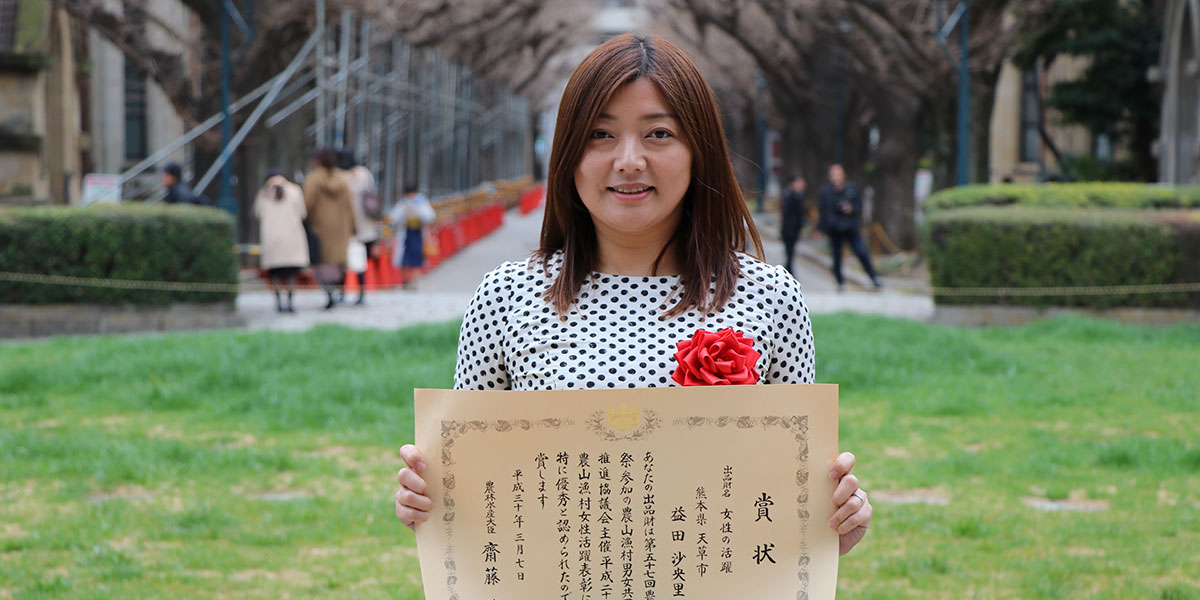 賞状
出品財名 女性の活躍
熊本県 天草市
益田 沙央里
あなたの出品財は第五十七回農
祭参加の農山漁村男女共
推進協議会主催平成二十
農山漁村女性活躍表彰に
特に優秀と認められたので
賞します
平成三十年三月七日
農林水産大臣 齋藤